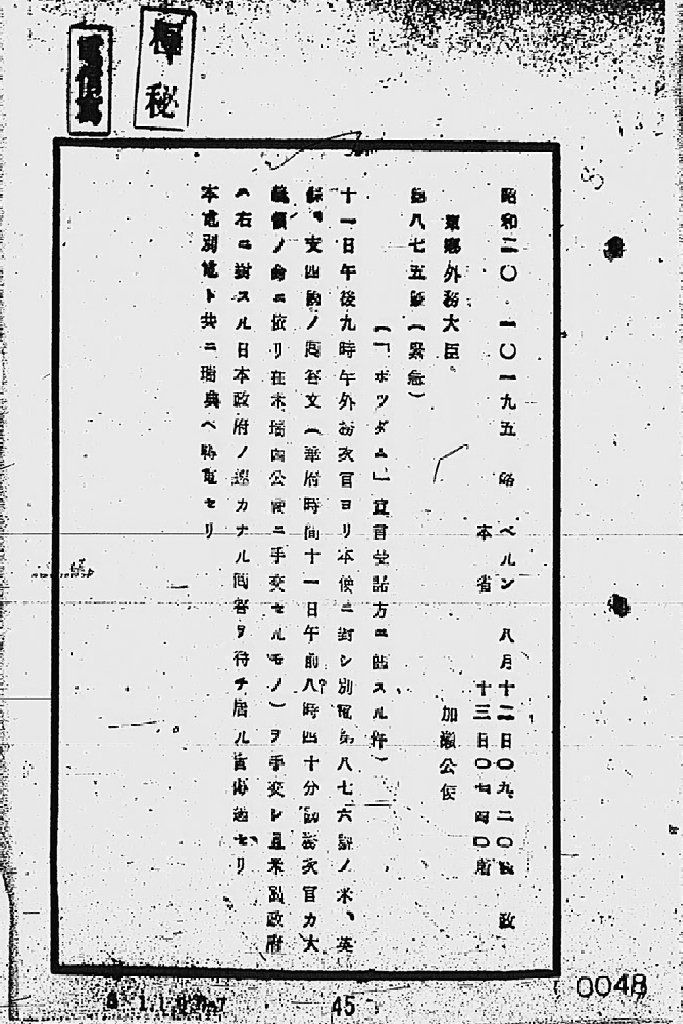 極秘
電信寫
昭和二〇 一〇一九五 略 ベルン 八月十二日〇九、二〇發 政
本省 十三日〇七四〇着
東郷外務大臣。 加瀬公使
第八七五號(緊急)
(「ポツダム」宣言受諾方ニ關スル件)
十一日午後九時半外務次官ヨリ本使ニ對シ別電第八七六號ノ米、英
蘇、支四國ノ回答文(華府時間十一日午前八時四十分國務次官カ大
統領ノ命ニ依リ在米瑞西公使ニ手交セルモノ)ヲ手交シ且米國政府
ハ右ニ對スル日本政府ノ速カナル回答ヲ待チ居ル旨附言セリ
本電別電ト共ニ瑞典ヘ轉電セリ
45
0048